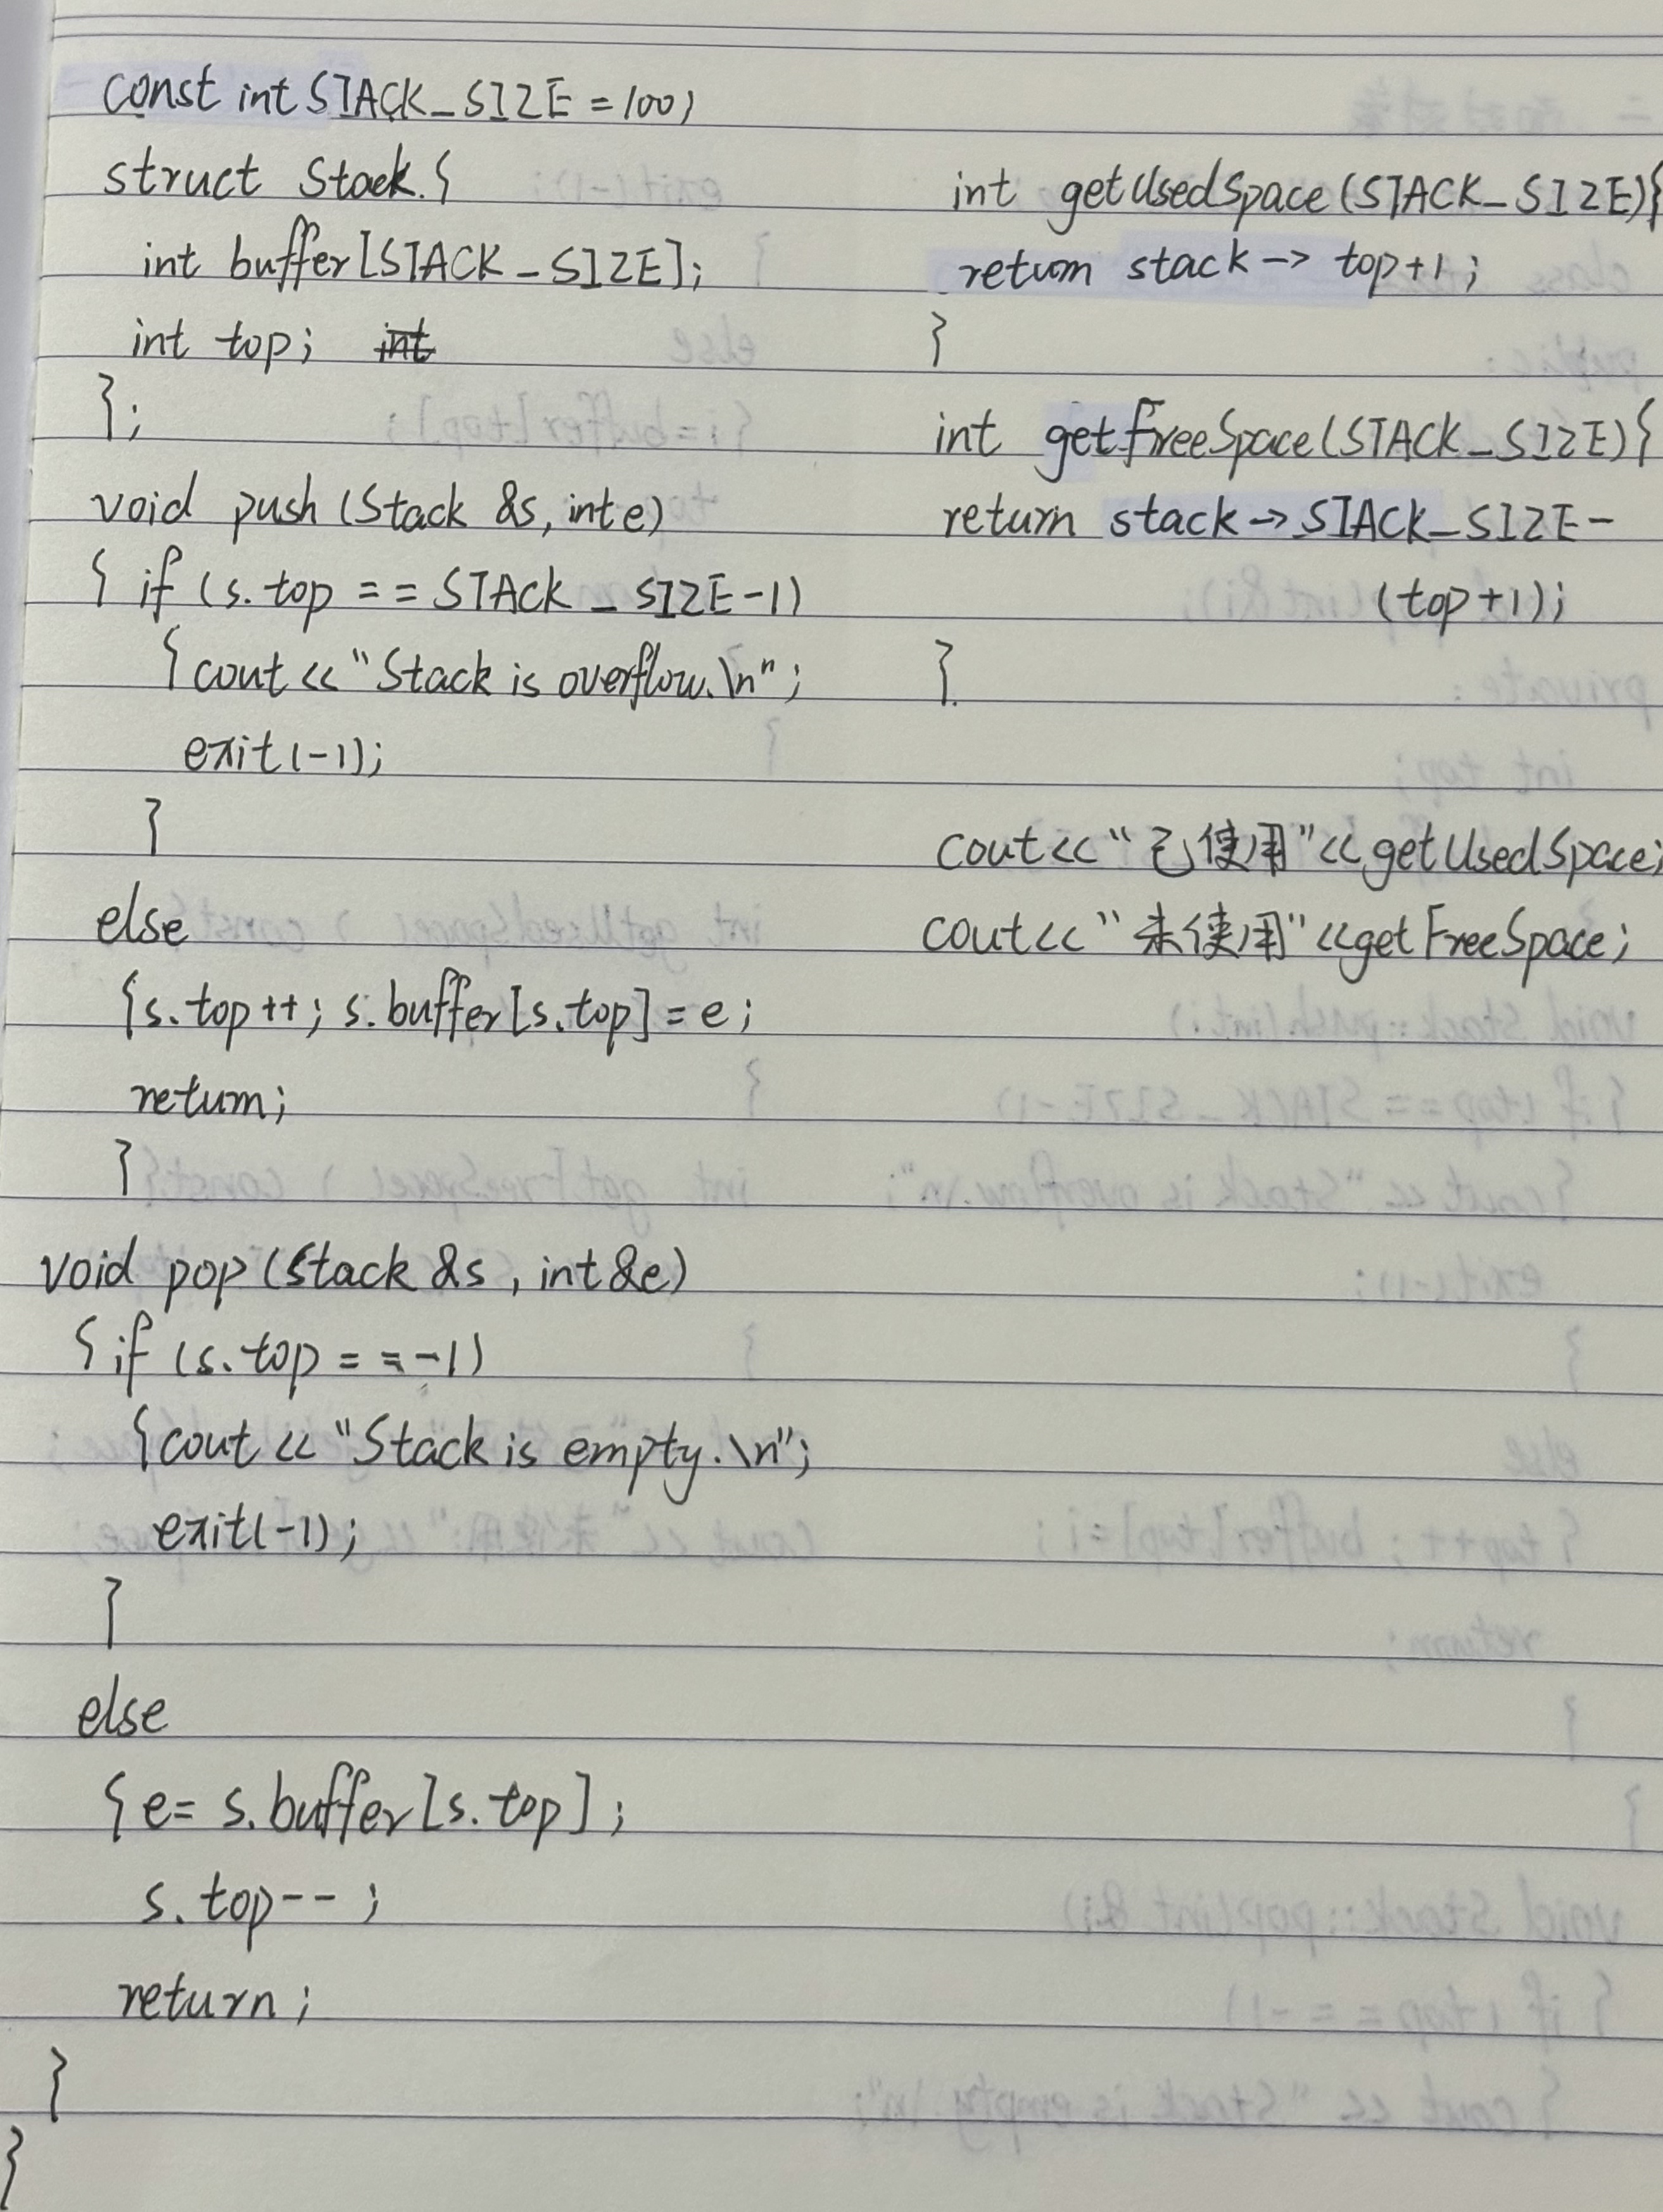 const int STACK_SIZE = 100;
struct Stack {
int buffer[STACK_SIZE];
int top; int
};
void push (Stack &s, int e)
{ if (s.top == STACK_SIZE-1)
{ cout << "Stack is overflow.\n";
exit(-1);
}
else
{s.top++; s.buffer[s.top] = e;
return;
}
void pop (Stack &s, int &e)
{ if (s.top == -1)
{cout << "Stack is empty.\n";
exit(-1);
}
else
{e= s.buffer[s.top];
s.top--;
return;
}
}
int getUsedSpace (STACK_SIZE){
return stack -> top+1;
}
int getFreeSpace (STACK_SIZE){
return stack -> STACK_SIZE-
(top+1);
}
cout << "已使用" << getUsedSpace;
cout << "未使用" << getFreeSpace;